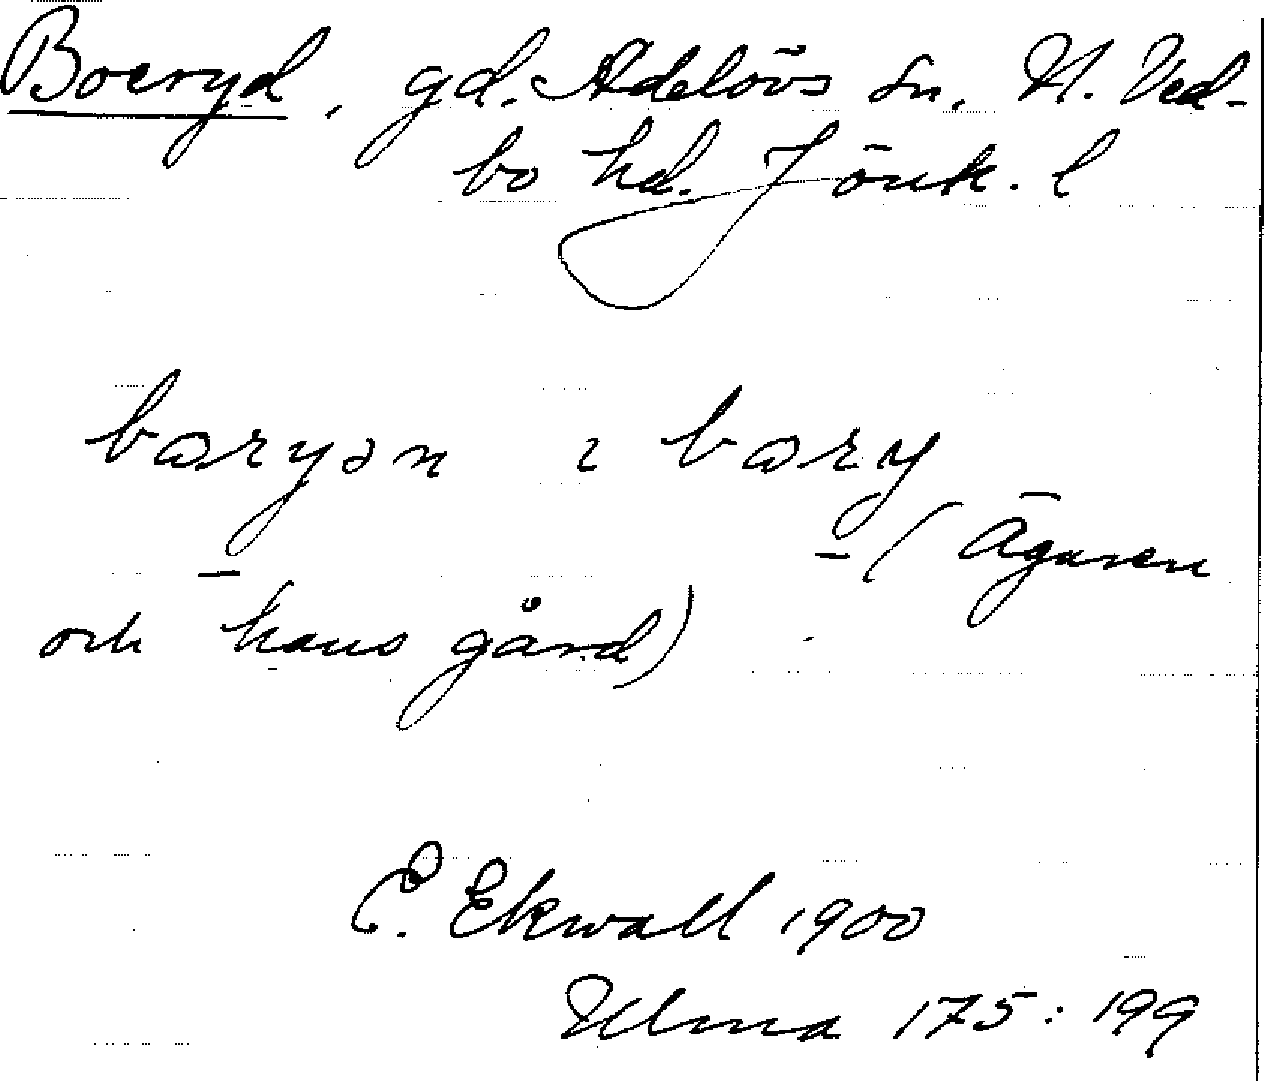 Boeryd, gd. Adelövs sn. N. Ved-
bo hd. Jönk. l
bɷryən ɩ bɷry
(Ägaren
och hans gård)
E. Ekwall 1900
Ulma 175:199